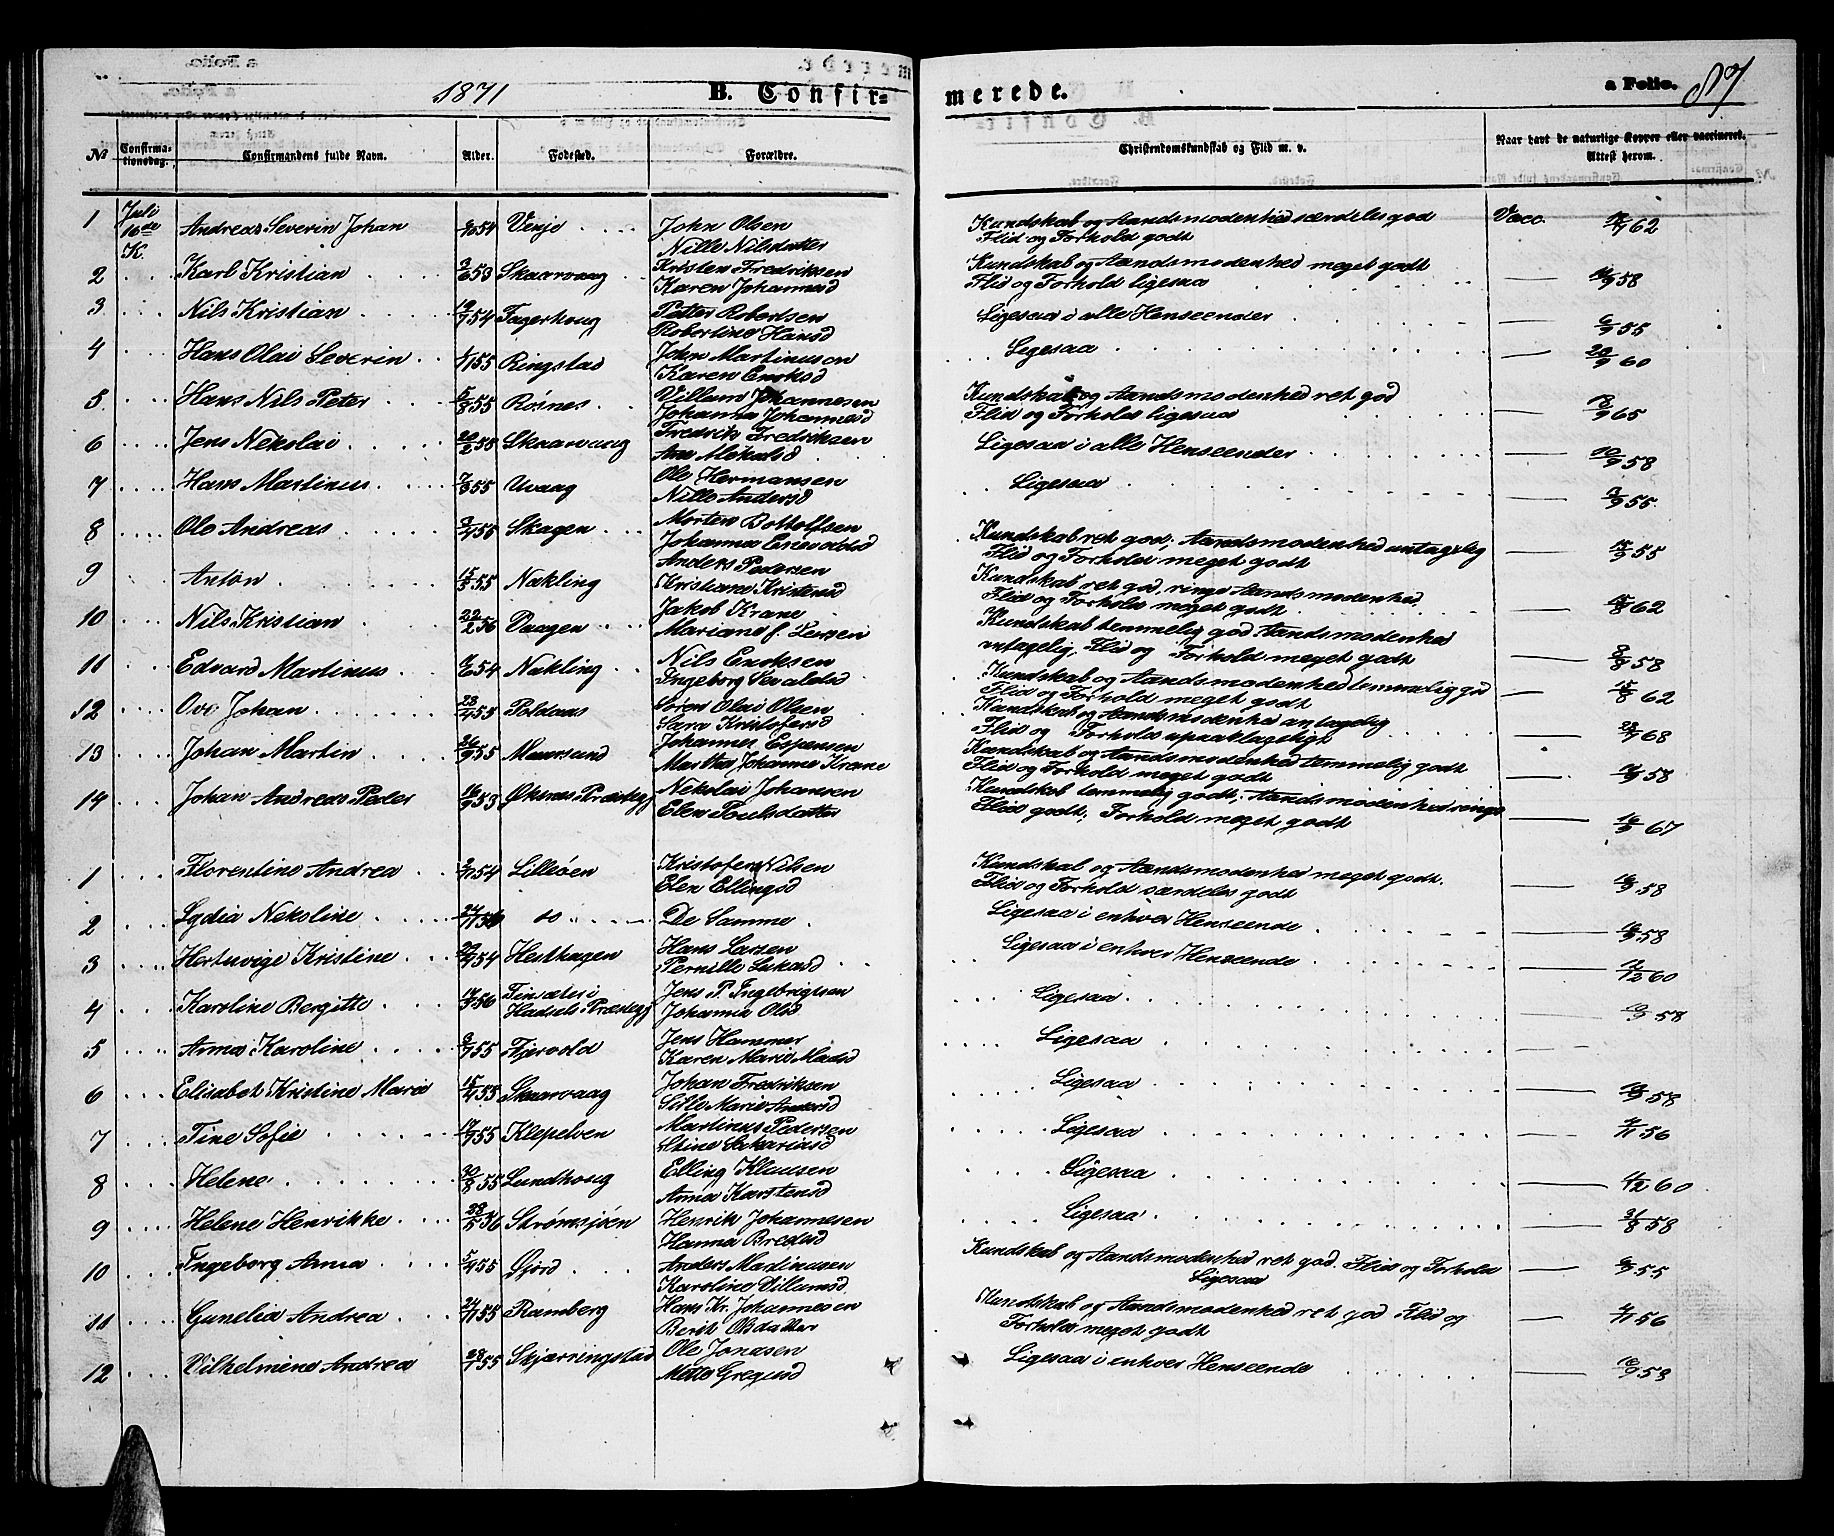 1871 B. Confir=
merede. a Folio. 87
No Confirma-tionsdag. Confirmandens fulde Navn. Alder. Fødested. Forældre. Christendomskundskab og Flid m. v. Naar havt de naturlige Kopper eller vaccineret. Attest herom.
1 Juli 16de K. Andreas Severin Johan 54 Vinje John Olsen Nille Nilsdatter Kundskab og Aandsmodenhed særdeles god Flid og Forhold godt Vacc. 62
2 Karl Kristian 53 Skaarvaag Kristen Fredriksen Karen Johannesd Kundskab og Aandsmodenhed meget godt Flid og Forhold ligesaa 58
3 Nils Kristian 19/7 54 Fagerhoug Petter Robertsen Robertine Hansd Ligesaa i alle Henseender 55
4 Hans Olai Severin 55 Ringstad John Martinuson Karen Enoksd Ligesaa 20/9 60
5 Hans Nils Peter 55 Rosnes Villum Johannesen Johanna Johannesd Kundskab og Aandsmodenhed ret god Flid og Forhold ligesaa 65
6 Jens Nekolai 20/2 58 Skaarvaag Fredrik Fredriksen Ane Mekalsd Ligesaa i alle Henseender 10/9 58
7 Hans Martinus 55 Uvaag Ole Hermansen Nille Andersd Ligesaa 55
8 Ole Andreas 55 Skagen Morten Bottolfsen Johanna Enevoldsd Kundskab ret god; Aandsmodenhed antagelig Flid og Forhold meget godt 55
9 Anton 15/3 55 Nækling Anders Pedersen Kristiane Kristensd Kundskab ret god, ringe Aandsmodenhed, Flid og Forhold meget godt 62
10 Nils Kristian 22/2 56 Vaagen Jakob Krane Mariane f. Larsen Kundskab temmelig god Aandsmodenhed antagelig, Flid og Forhold meget godt 58
11 Edvard Martinus 54 Nækling Nils Enoksen Ingeborg Sevaldsd Kundskab og Aandsmodenhed temmelig god Flid og Forhold meget godt 15/8 62
12 Ove Johan Poldaas Søren Olai Olsen Sara Kristofersd Kundskab og Aandsmodenhed antagelig Flid og Forhold upaaklageligt 68
13 Johan Martin 26/9 55 Maarsund Johannes Espensen Martha Johanna Krane Kundskab og Aandsmodenhed temmelig godt Flid og Forhold meget godt 58
14 Johan Andreas Peder 53 Øksnes Præstegj Nekolai Johansen Elen Poulsdatter Kundskab temmelig godt; Aandsmodenhed ringe Flid godt; Forhold meget godt 67
1 Florentine Andrea 54 Lilleøen Kristofer Nilsen Elen Ellingsd Kundskab og Aandsmodenhed meget godt. Flid og Forhold særdeles godt 58
2 Lydia Nekoline 56 do De Samme Ligesaa i enhver Henseende 58
3 Hertuvige Kristine 54 Hesthagen Hans Larsen Pernille Lukasd Ligesaa i enhver Henseende 60
4 Karoline Bergitte 56 Finsæter i Hadsels Præstegj Jens P. Ingebrigtsen Johanna Olsd Ligesaa 58
5 Anna Karoline 55 Fjervold Jens Hammer Karen Marie Madsd Ligesaa
6 Elisabet Kristine Marie 15/4 55 Skaarvaag Johan Fredriksen Sille Marie Andersd Ligesaa 58
7 Tine Sofie 55 Klepelven Martinus Pedersen Stine Sakariasd Ligesaa 56
8 Helene 55 Lundhoug Elling Klausen Anna Karstensd Ligesaa 60
9 Helene Henrikke 28/5 56 Strømsjøen Henrik Johannesen Hanna Bredesd Ligesaa 21/8 58
10 Ingeborg Anna 5/4 55 Gjørd Anders Martinusen Karoline Villumsd Kundskab og Aandsmodenhed ret god. Flid og Forhold Ligesaa 55
11 Gunelia Andrea 55 Ramberg Hans Kr. Johannesen Berit Olsdatter Kundskab og Aandsmodenhed ret god Flid og Forhold meget godt 56
12 Vilhelmine Andrea 28/7 55 Skjærringstad Ole Jonasen Mette Gregusd Ligesaa i enhver Henseende 58